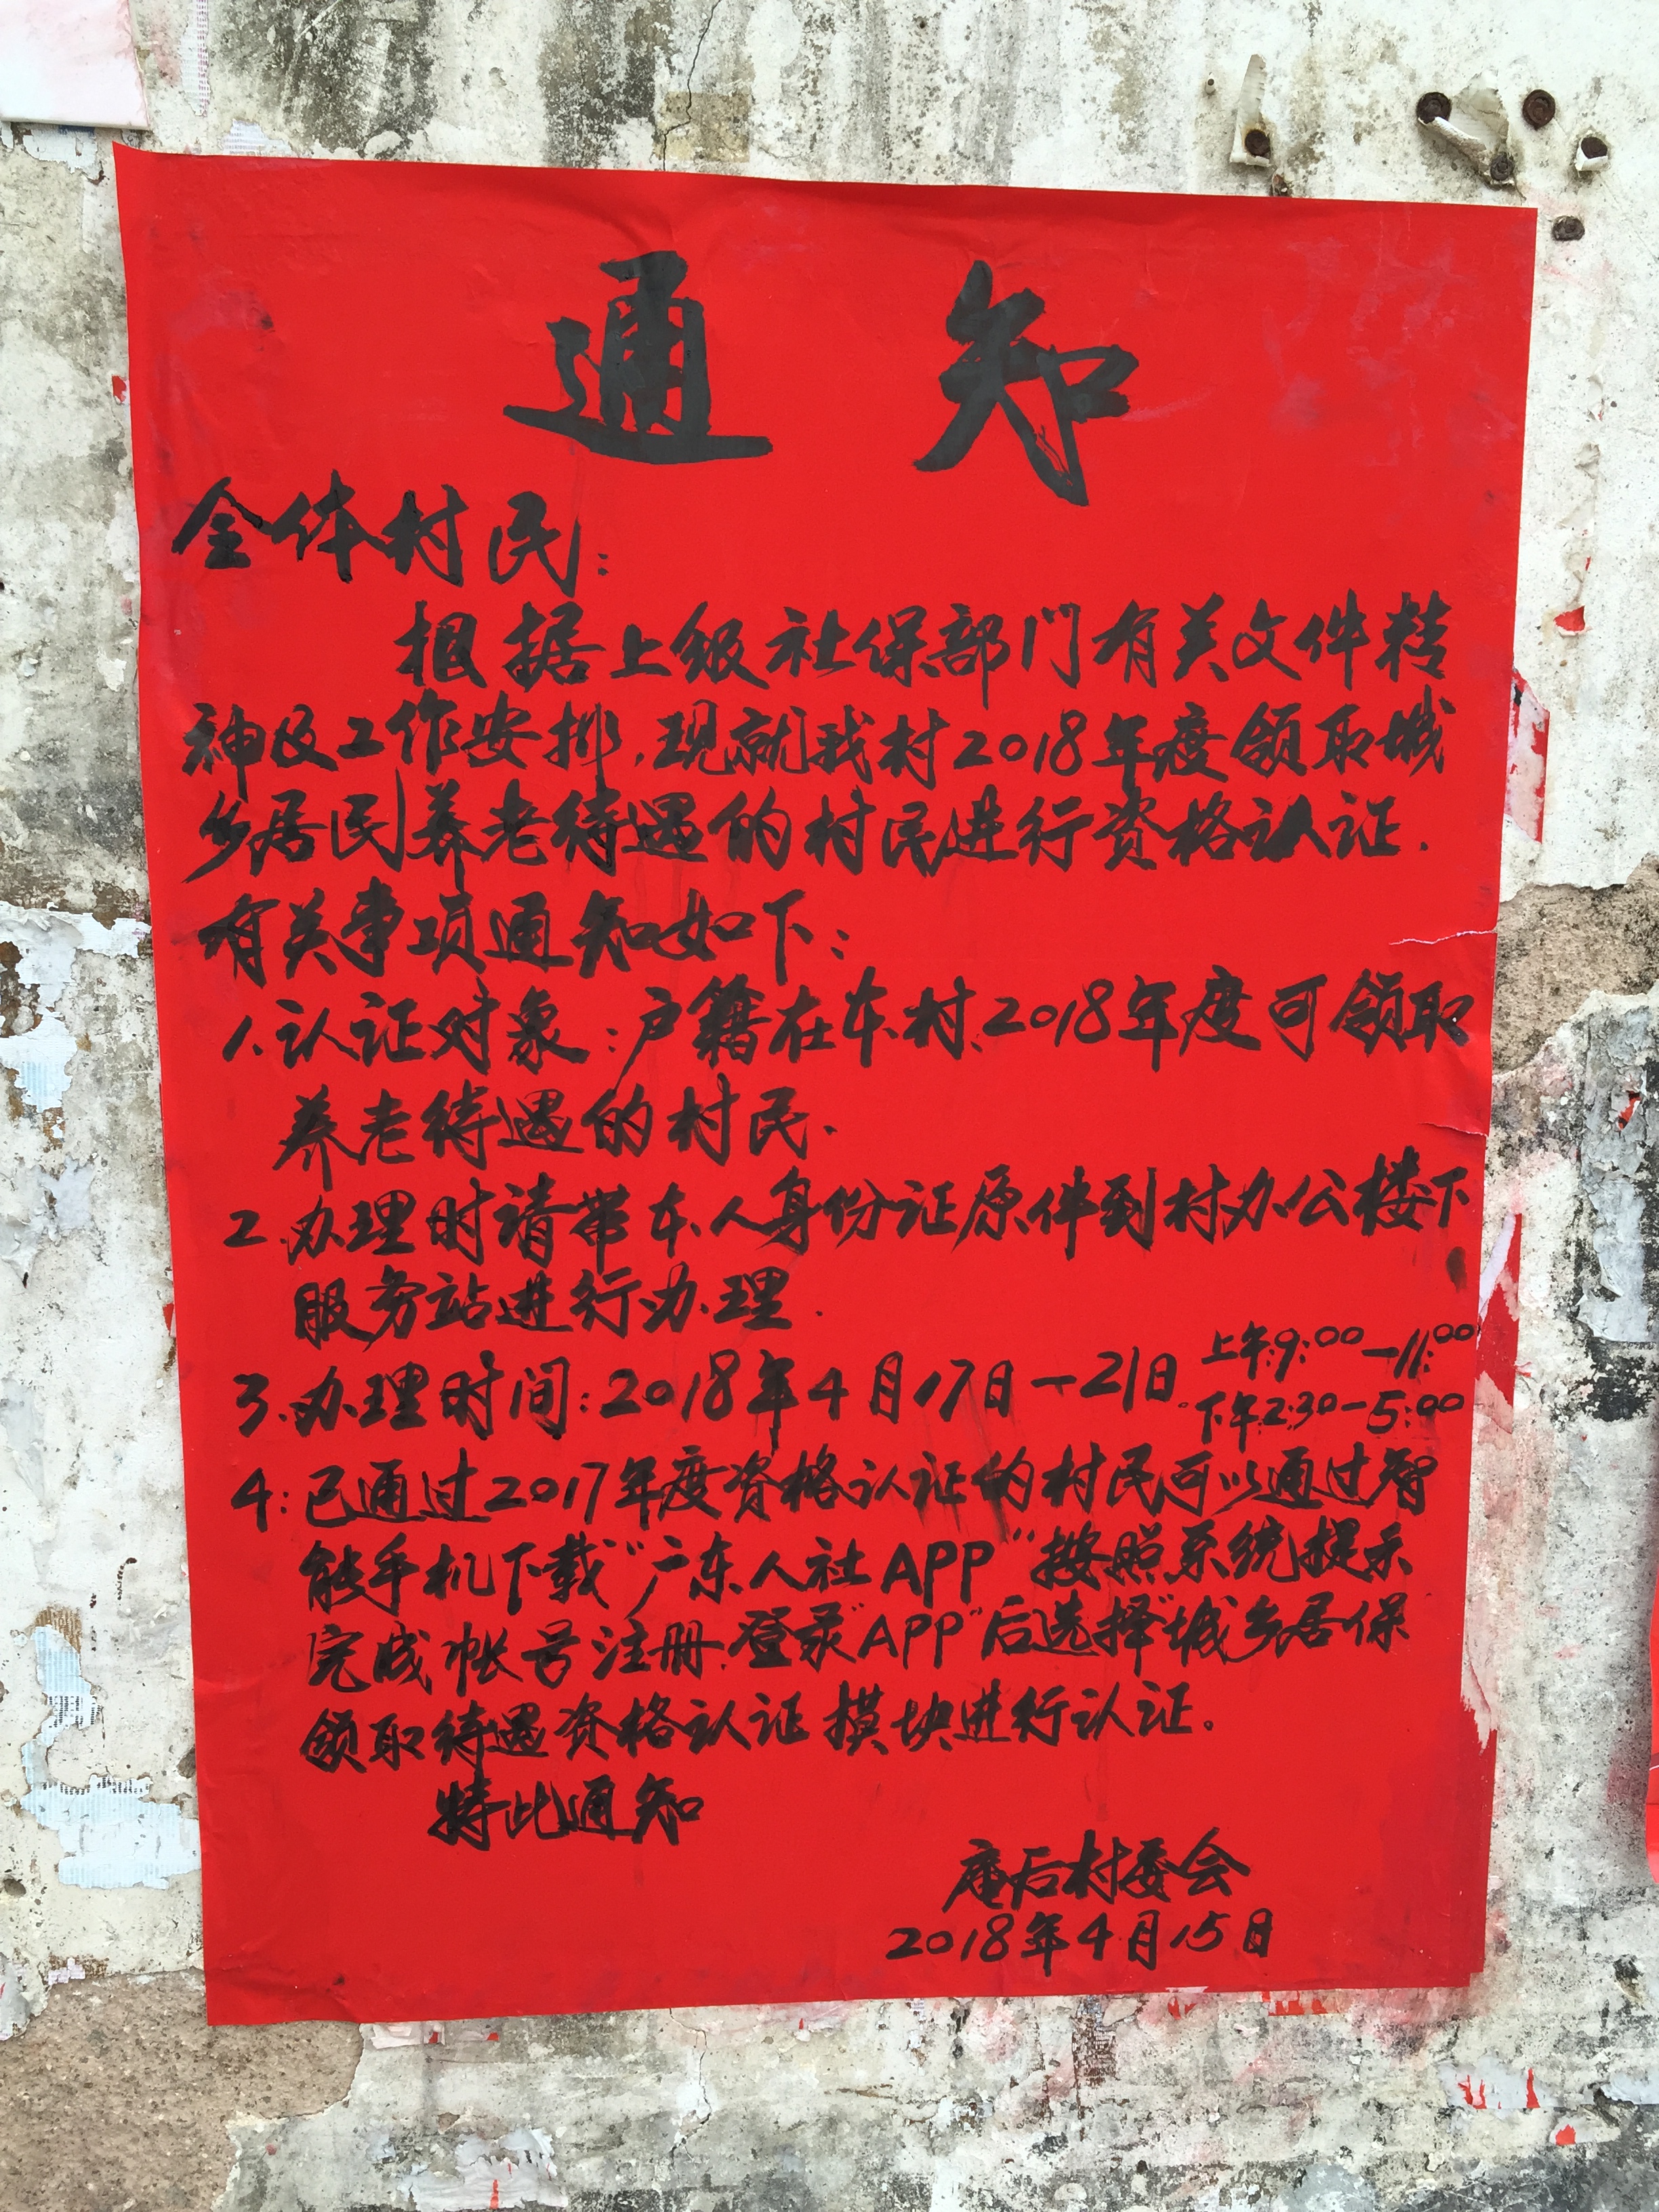 通知
全体村民：
根据上级社保部门有关文件精
神及工作安排，现就我村2018年度领取城
乡居民养老待遇的村民进行资格认证.
有关事项通知如下：
1.认证对象：户籍在本村、2018年度可领取
养老待遇的村民.
2.办理时请带本人身份证原件到村办公楼下
服务站进行办理.
3.办理时间：2018年4月17日—21日.上午:9:00—11:00
下午:2:30—5:00
4:已通过2017年度资格认证的村民可以通过智
能手机下载“广东人社APP”按照系统提示
完成帐号注册.登录“APP”后选择“城乡居保
领取待遇资格认证模块进行认证。
特此通知
庵后村委会
2018年4月15日